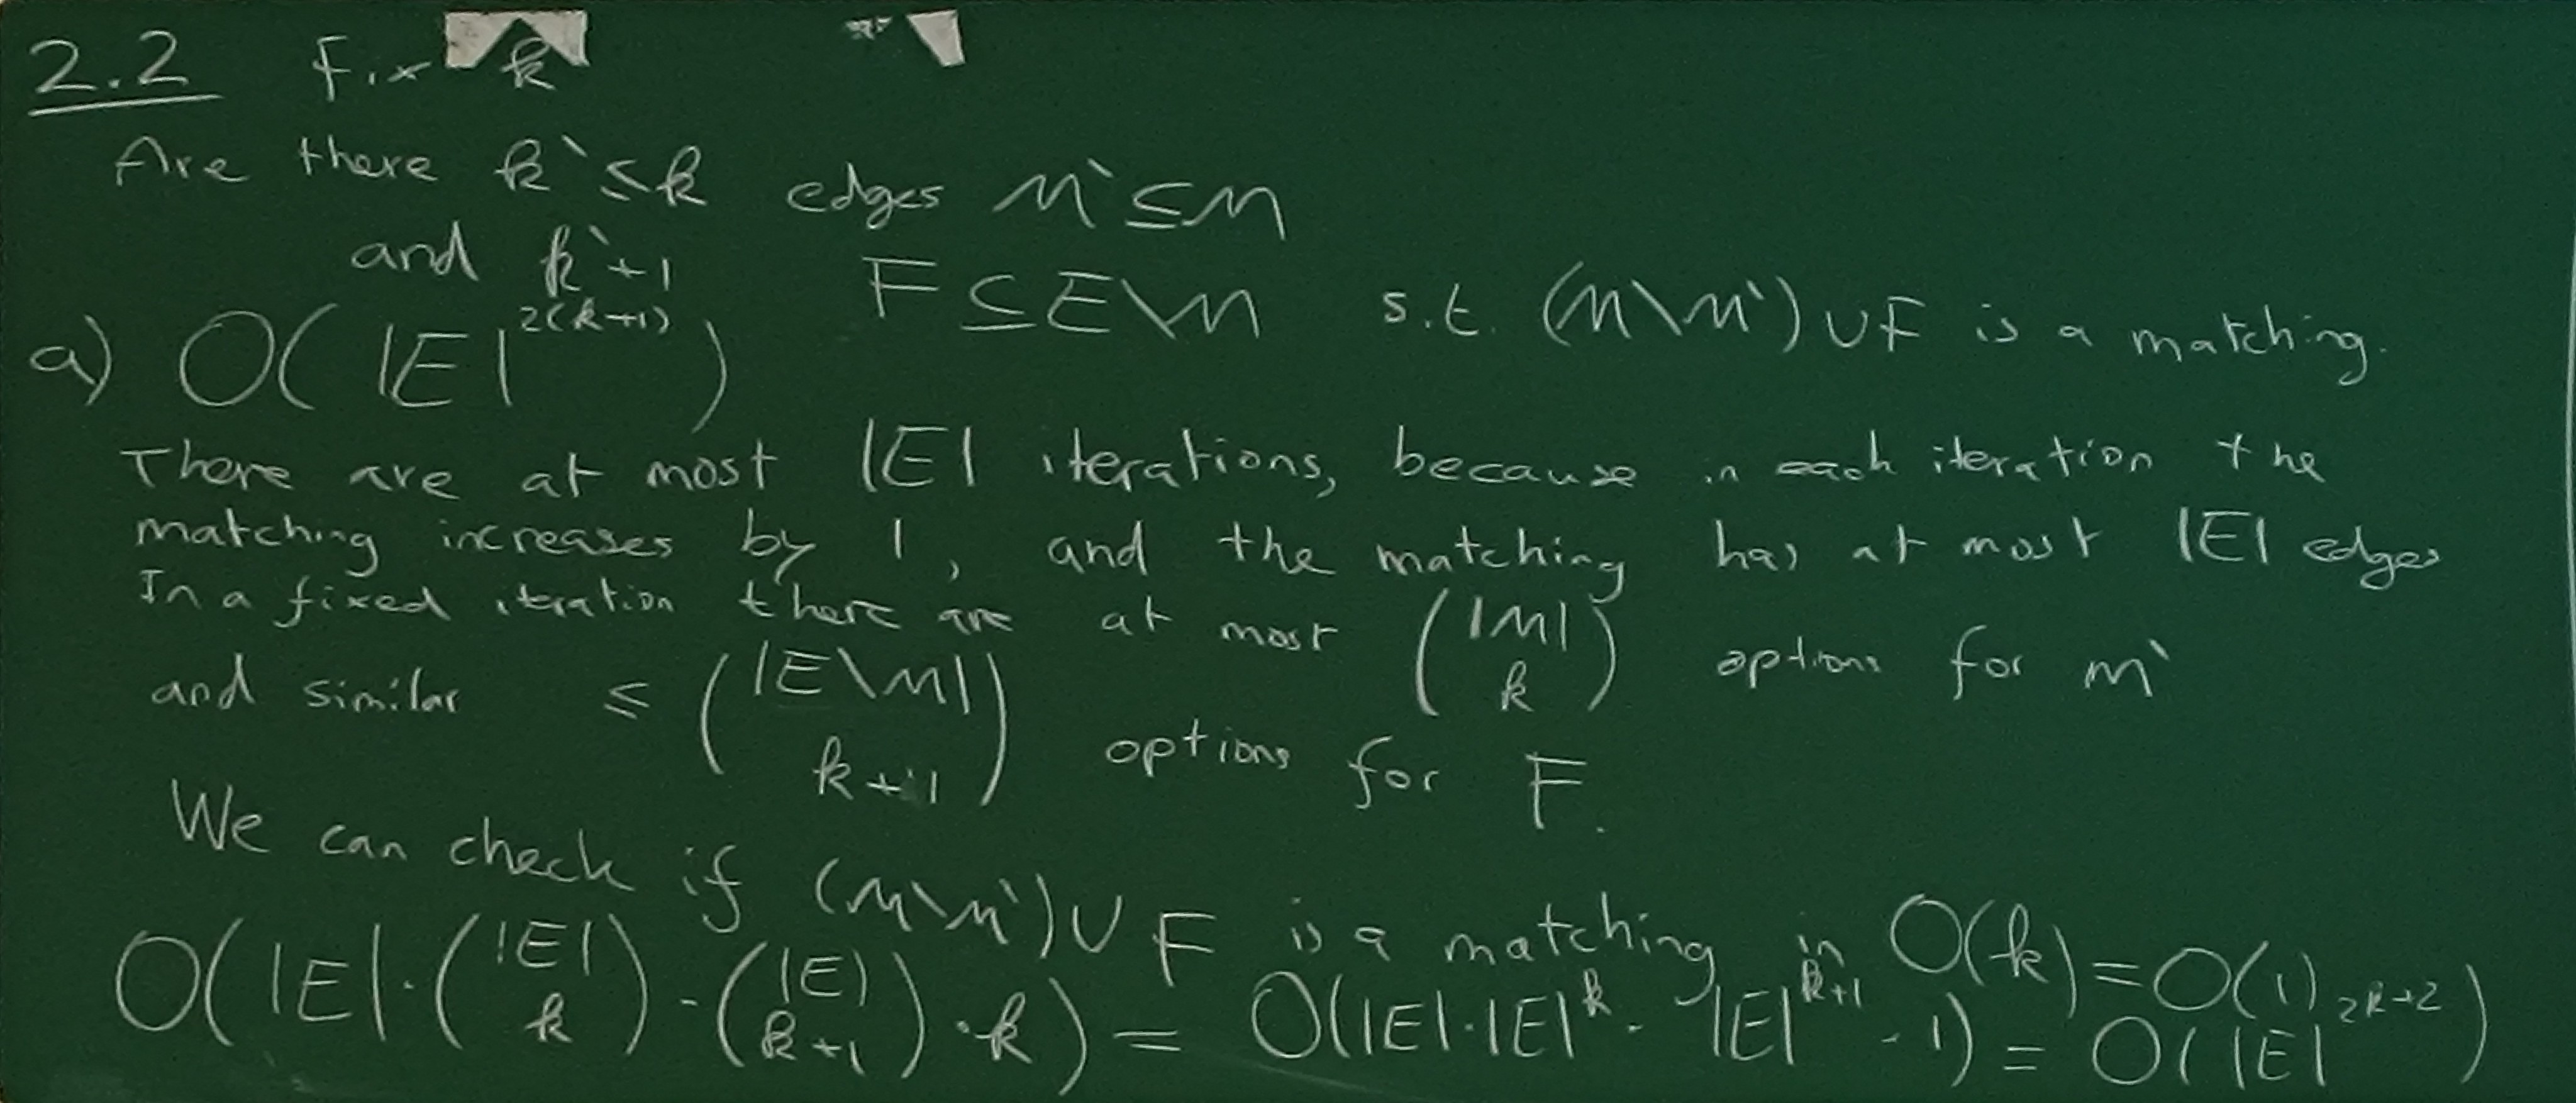 2.2 Fix k
Are there k` ≤ k edges M` ⊆ M
and k`+1 F ⊆ E\M s.t. (M\M`) ∪ F is a matching.
a) O( |E|^{2(k+1)} )
There are at most |E| iterations, because in each iteration the
matching increases by 1, and the matching has at most |E| edges
In a fixed iteration there are at most (|M| \choose k) options for M`
and similar ≤ (|E\M| \choose k+1) options for F.
We can check if (M\M`) ∪ F is a matching in O(k) = O(1)
O( |E| · (|E| \choose k) · (|E| \choose k+1) · k ) = O(|E| · |E|^k · |E|^{k+1} · 1) = O( |E|^{2k+2} )